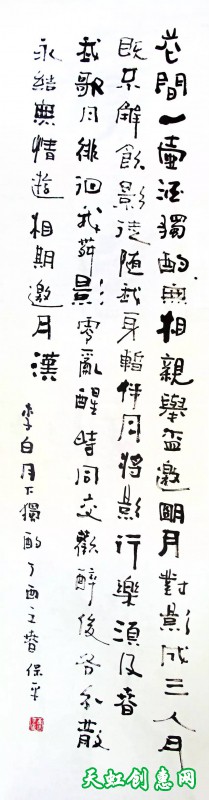 花間一壺酒獨酌無相親舉盃邀朙月對影成三人月
既不解飲影徒随我身暫伴月將影行樂須及春
我歌月徘徊我舞影零亂醒時同交歡醉後各分散
永結無情遊相期邀月漢
李白月下獨酌丁酉立春保平
天虹创意网